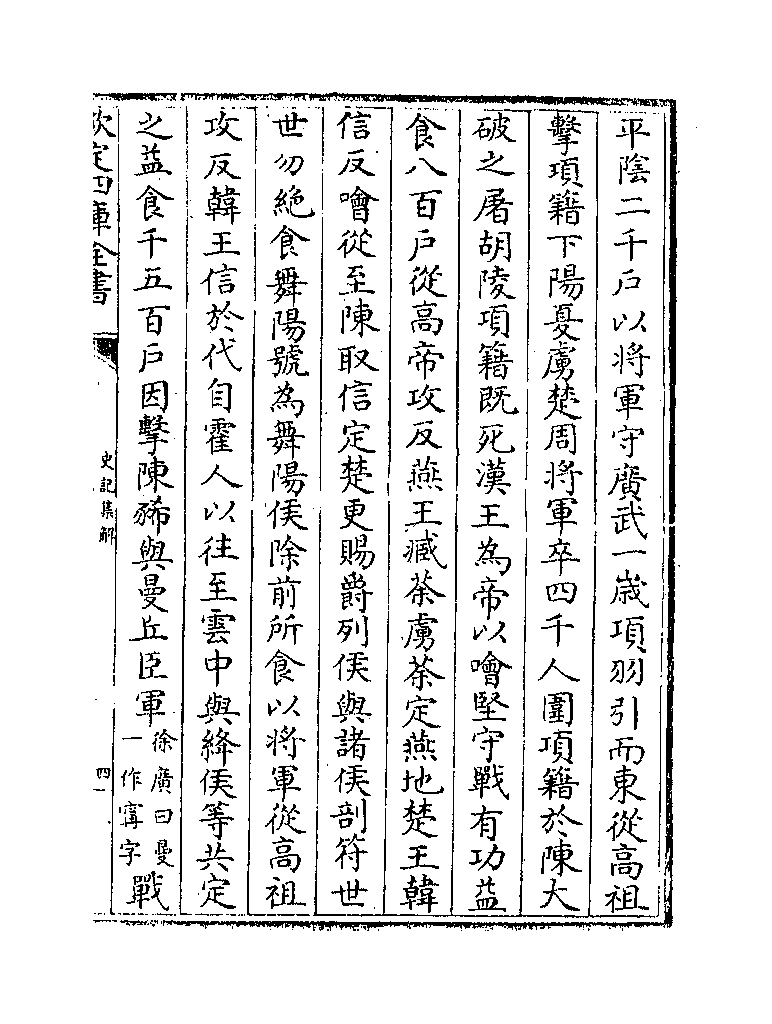 平陰二千戶以將軍守廣武一嵗項羽引而東從高祖
擊項籍下陽夏虜楚周將軍卒四千人圍項籍於陳大
破之屠胡陵項籍既死漢王為帝以噲堅守戰有功益
食八百戶從高帝攻反燕王臧荼虜荼定燕地楚王韓
信反噲從至陳取信定楚更賜爵列侯與諸侯剖符世
世勿絶食舞陽號為舞陽侯除前所食以將軍從高祖
攻反韓王信於代自霍人以往至雲中與絳侯等共定
之益食千五百戶因擊陳豨與曼丘臣軍
徐廣曰曼
一作寗字
戰
欽定四庫全書
史記集解
四